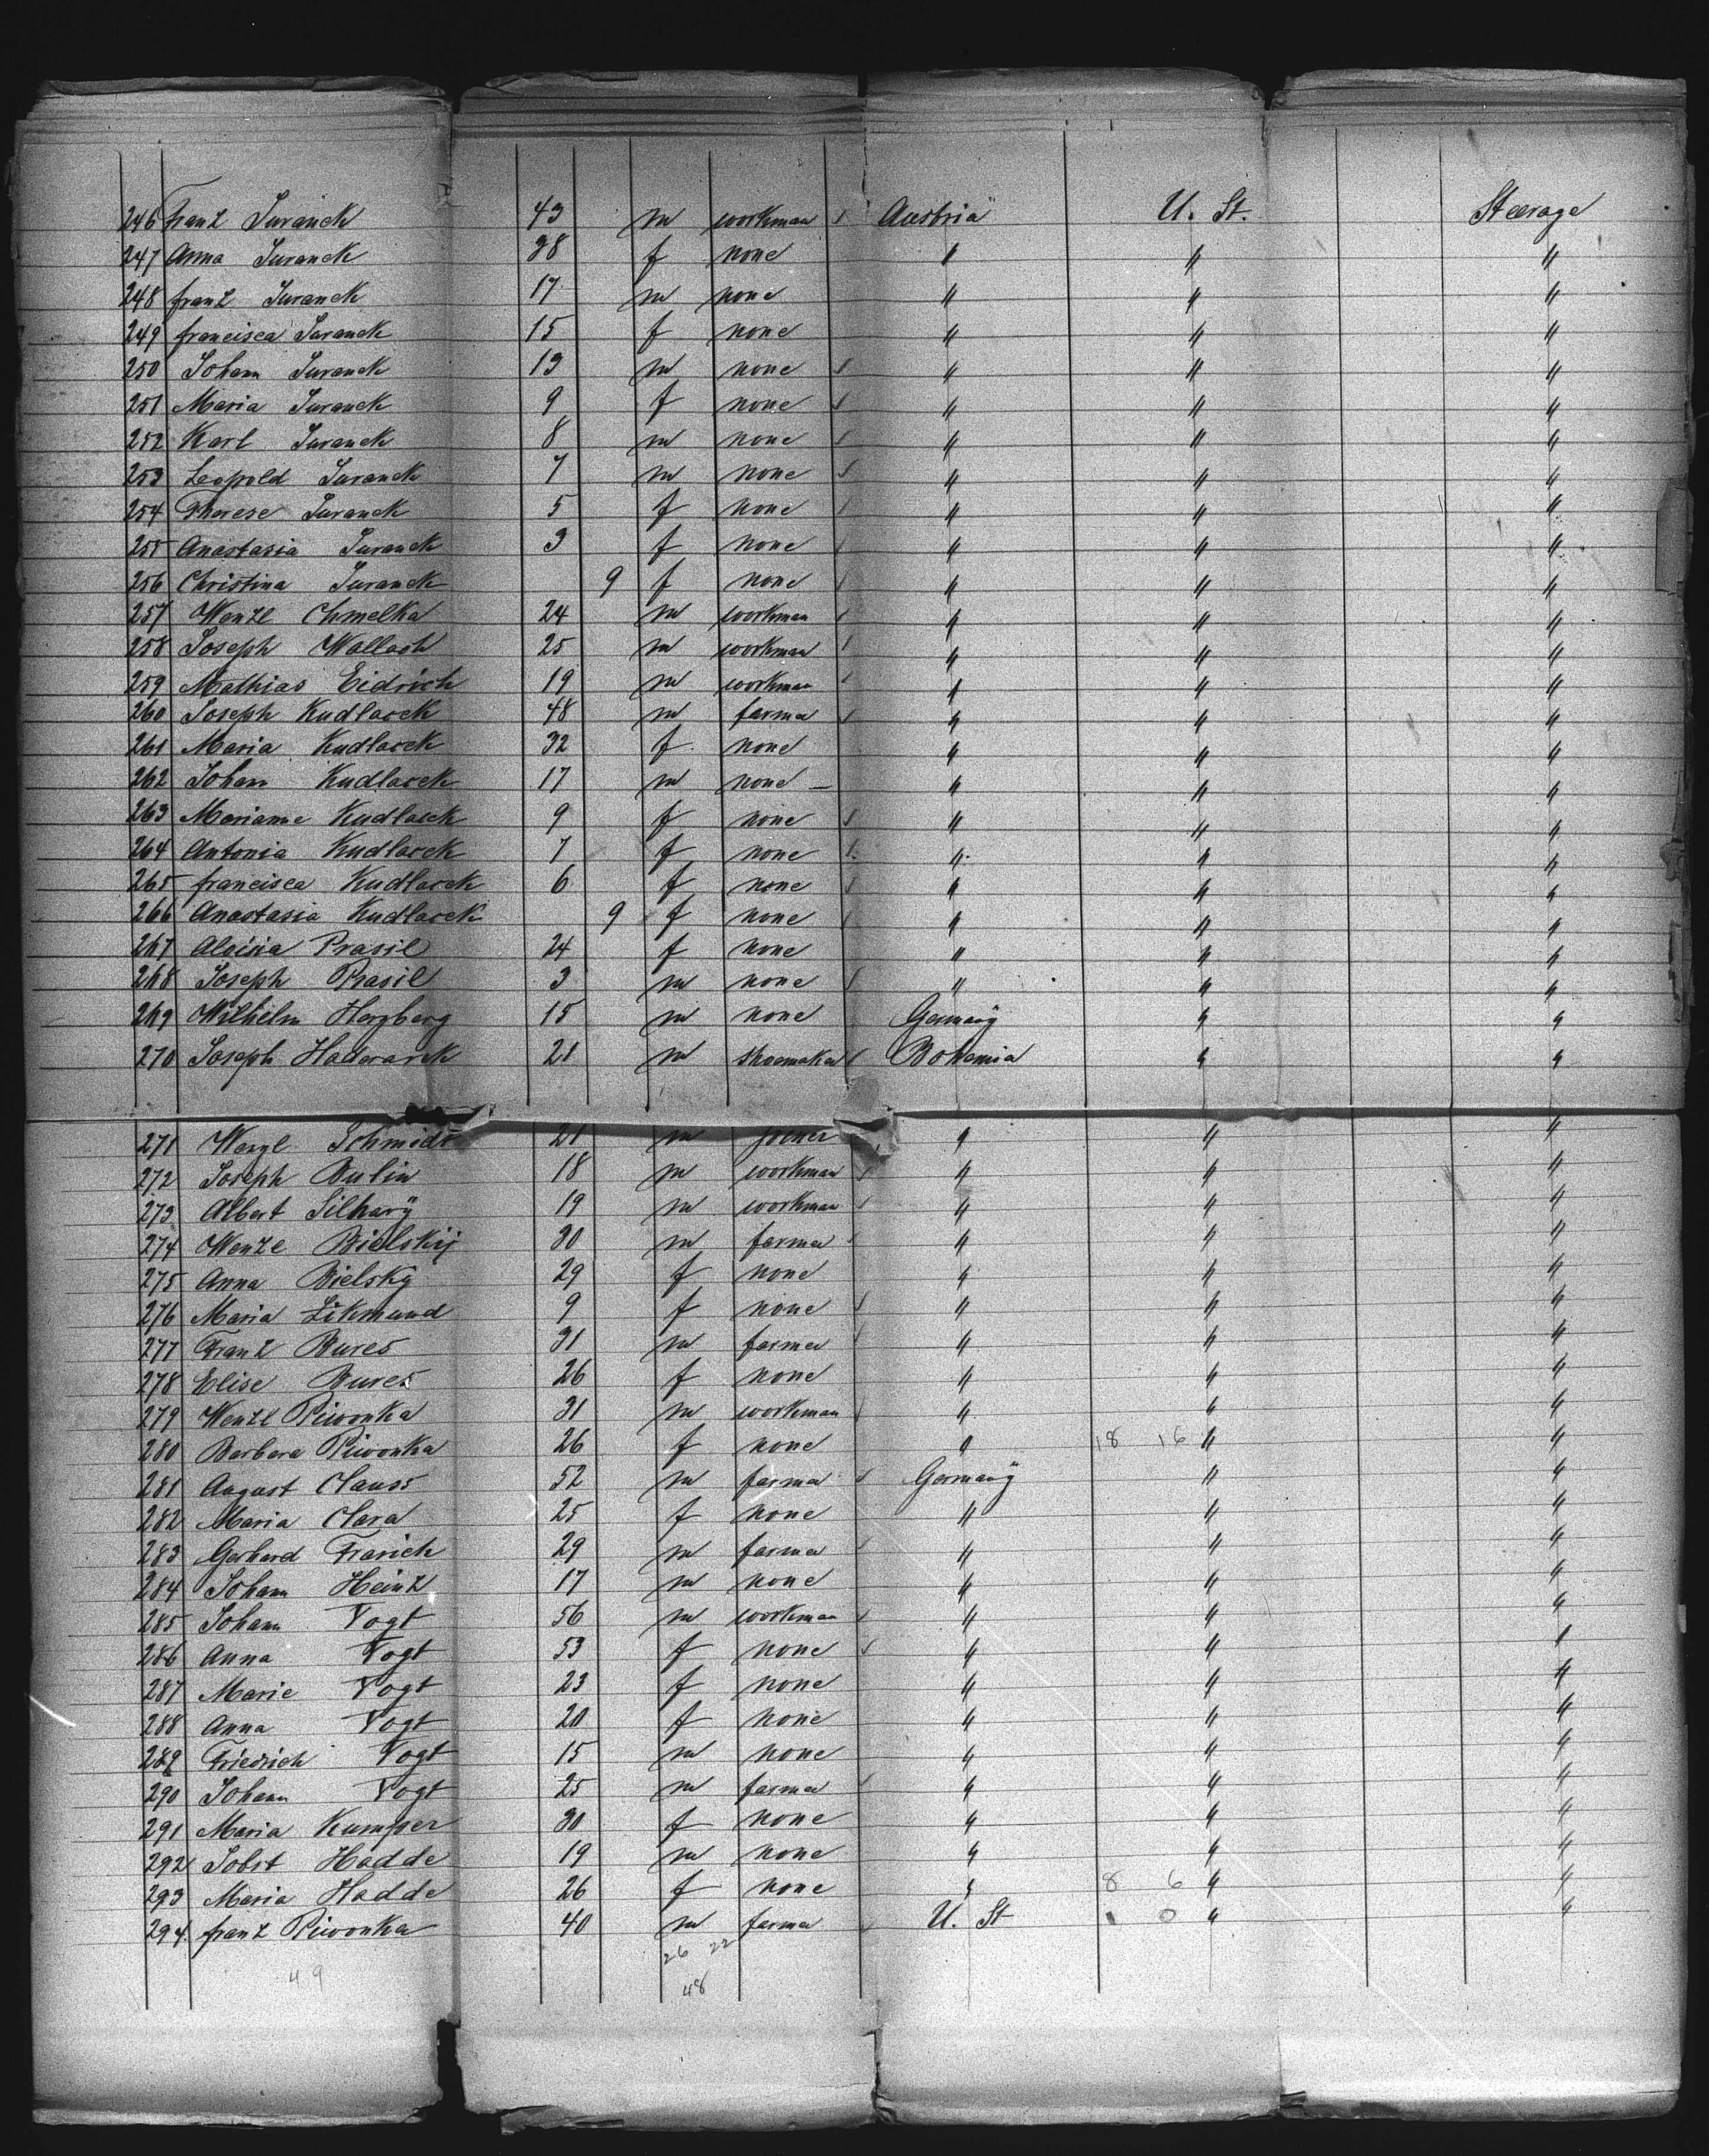 246 Franz Juranek 43 m workman Austria U. St. Steerage
247 Anna Juranek 38 f none " " "
248 franz Juranek 17 m none " " "
249 francisca Juranek 15 f none " " "
250 Johann Juranek 13 m none " " "
251 Maria Juranek 9 f none " " "
252 Karl Juranek 8 m none " " "
253 Leopold Juranek 7 m none " " "
254 Therese Juranek 5 f none " " "
255 Anastasia Juranek 3 f none " " "
256 Christina Juranek 9 f none " " "
257 Wenzl Chmelka 24 m workman " " "
258 Joseph Wallach 25 m workman " " "
259 Mathias Eidrich 19 m workman " " "
260 Joseph Kudlacek 48 m farmer " " "
261 Maria Kudlacek 32 f none " " "
262 Johann Kudlacek 17 m none " " "
263 Marianne Kudlacek 9 f none " " "
264 Antonia Kudlacek 7 f none " " "
265 francisca Kudlacek 6 f none " " "
266 Anastasia Kudlacek 9 f none " " "
267 Aloisia Prasil 24 f none " " "
268 Joseph Prasil 3 m none " " "
269 Wilhelm Herzberg 15 m none Germany " "
270 Joseph 21 m shoemaker Bohemia " "
271 Wenzl Schmidt 21 m joiner " " "
272 Joseph Bulin 18 m workman " " "
273 Albert Silhavy 19 m workman " " "
274 Wenzl Bielsky 30 m farmer " " "
275 Anna Bielsky 29 f none " " "
276 Maria Zikmund 9 f none " " "
277 Franz Bures 31 m farmer " " "
278 Elise Bures 26 f none " " "
279 Wenzl Piwonka 31 m workman " " "
280 Barbara Piwonka 26 f none " 18 16 " "
281 August Clauss 52 m farmer Germany " "
282 Maria Clara 25 f none " " "
283 Gerhard Frarich 29 m farmer " " "
284 Johann Heinz 17 m none " " "
285 Johann Vogt 56 m workman " " "
286 Anna Vogt 53 f none " " "
287 Marie Vogt 23 f none " " "
288 Anna Vogt 20 f none " " "
289 Friedrich Vogt 15 m none " " "
290 Johann Vogt 25 m farmer " " "
291 Maria Kumper 30 f none " " "
292 Jobst Hadde 19 m none " " "
293 Maria Hadde 26 f none " 8 6 " "
294 franz Piwonka 40 m farmer U. St 1 0 " "
26 22
49 48